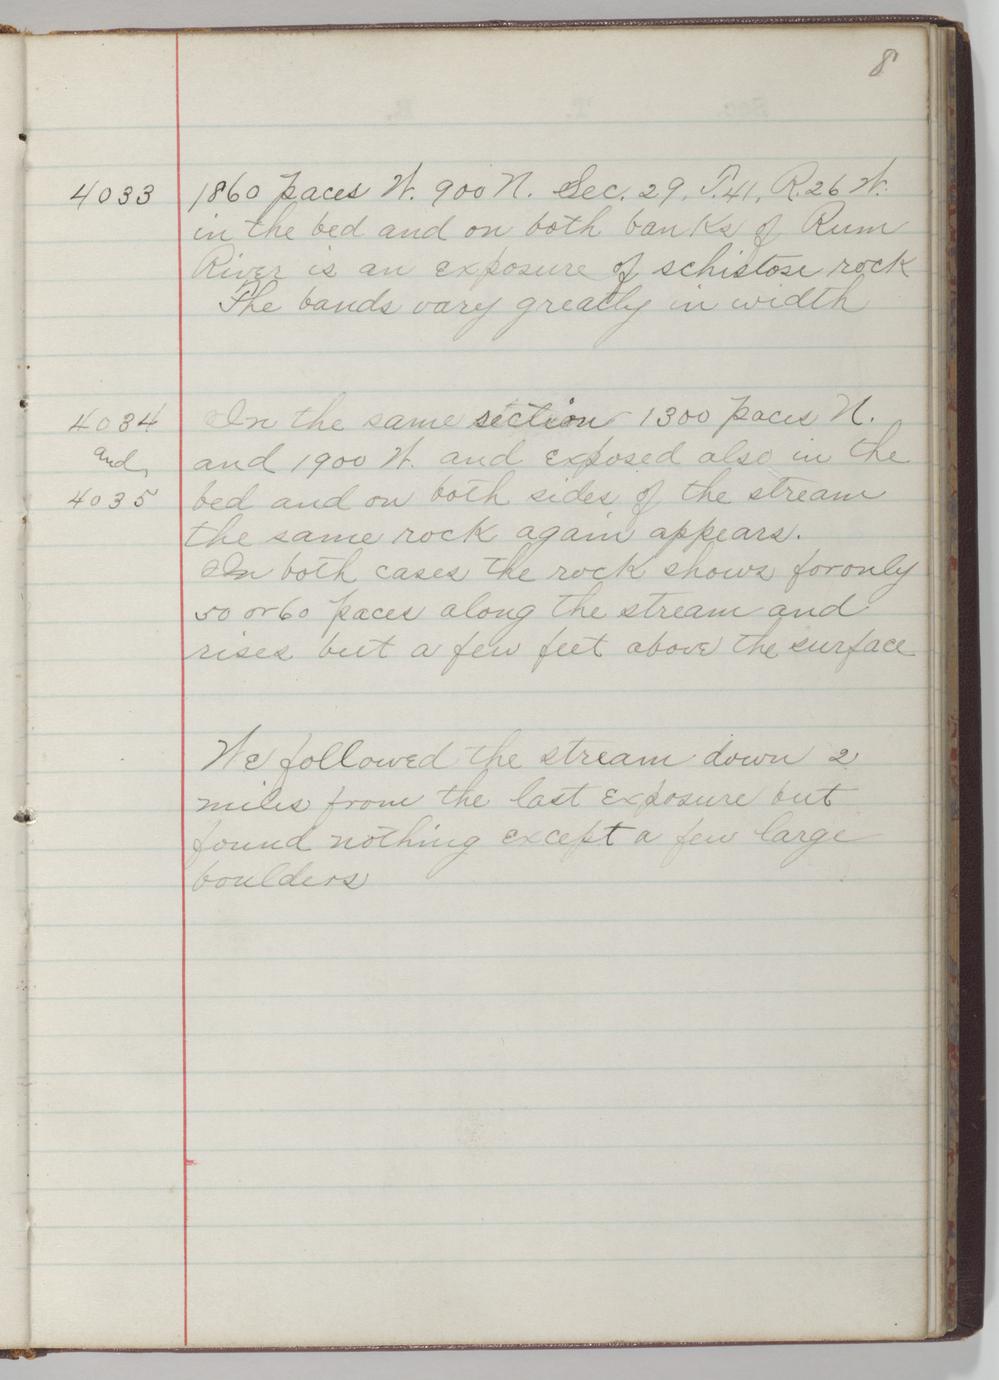 8
4033 1860 paces W. 900 N. Sec. 29, T.41, R.26 W.
in the bed and on both banks of Rum
River is an exposure of schistose rock
The bands vary greatly in width
4034 In the same section 1300 paces N.
and, and 1900 W. and exposed also in the
4035 bed and on both sides of the stream
the same rock again appears.
In both cases the rock shows for only
50 or 60 paces along the stream and
rises but a few feet above the surface
We followed the stream down 2
miles from the last exposure but
found nothing except a few large
boulders